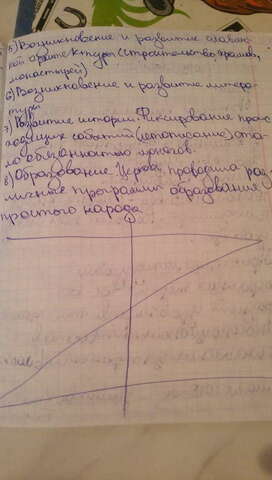 5) Возникновение и развитие славянс-
кой архитектуры (строительство храмов,
монастырей)
6) Возникновение и развитие литера-
туры
7) Развитие истории. Фиксирование проис-
ходящих событий (летописание) ста-
ло обязанностью монахов.
8) Образование. Церковь проводила раз-
личные программы образования
простого народа